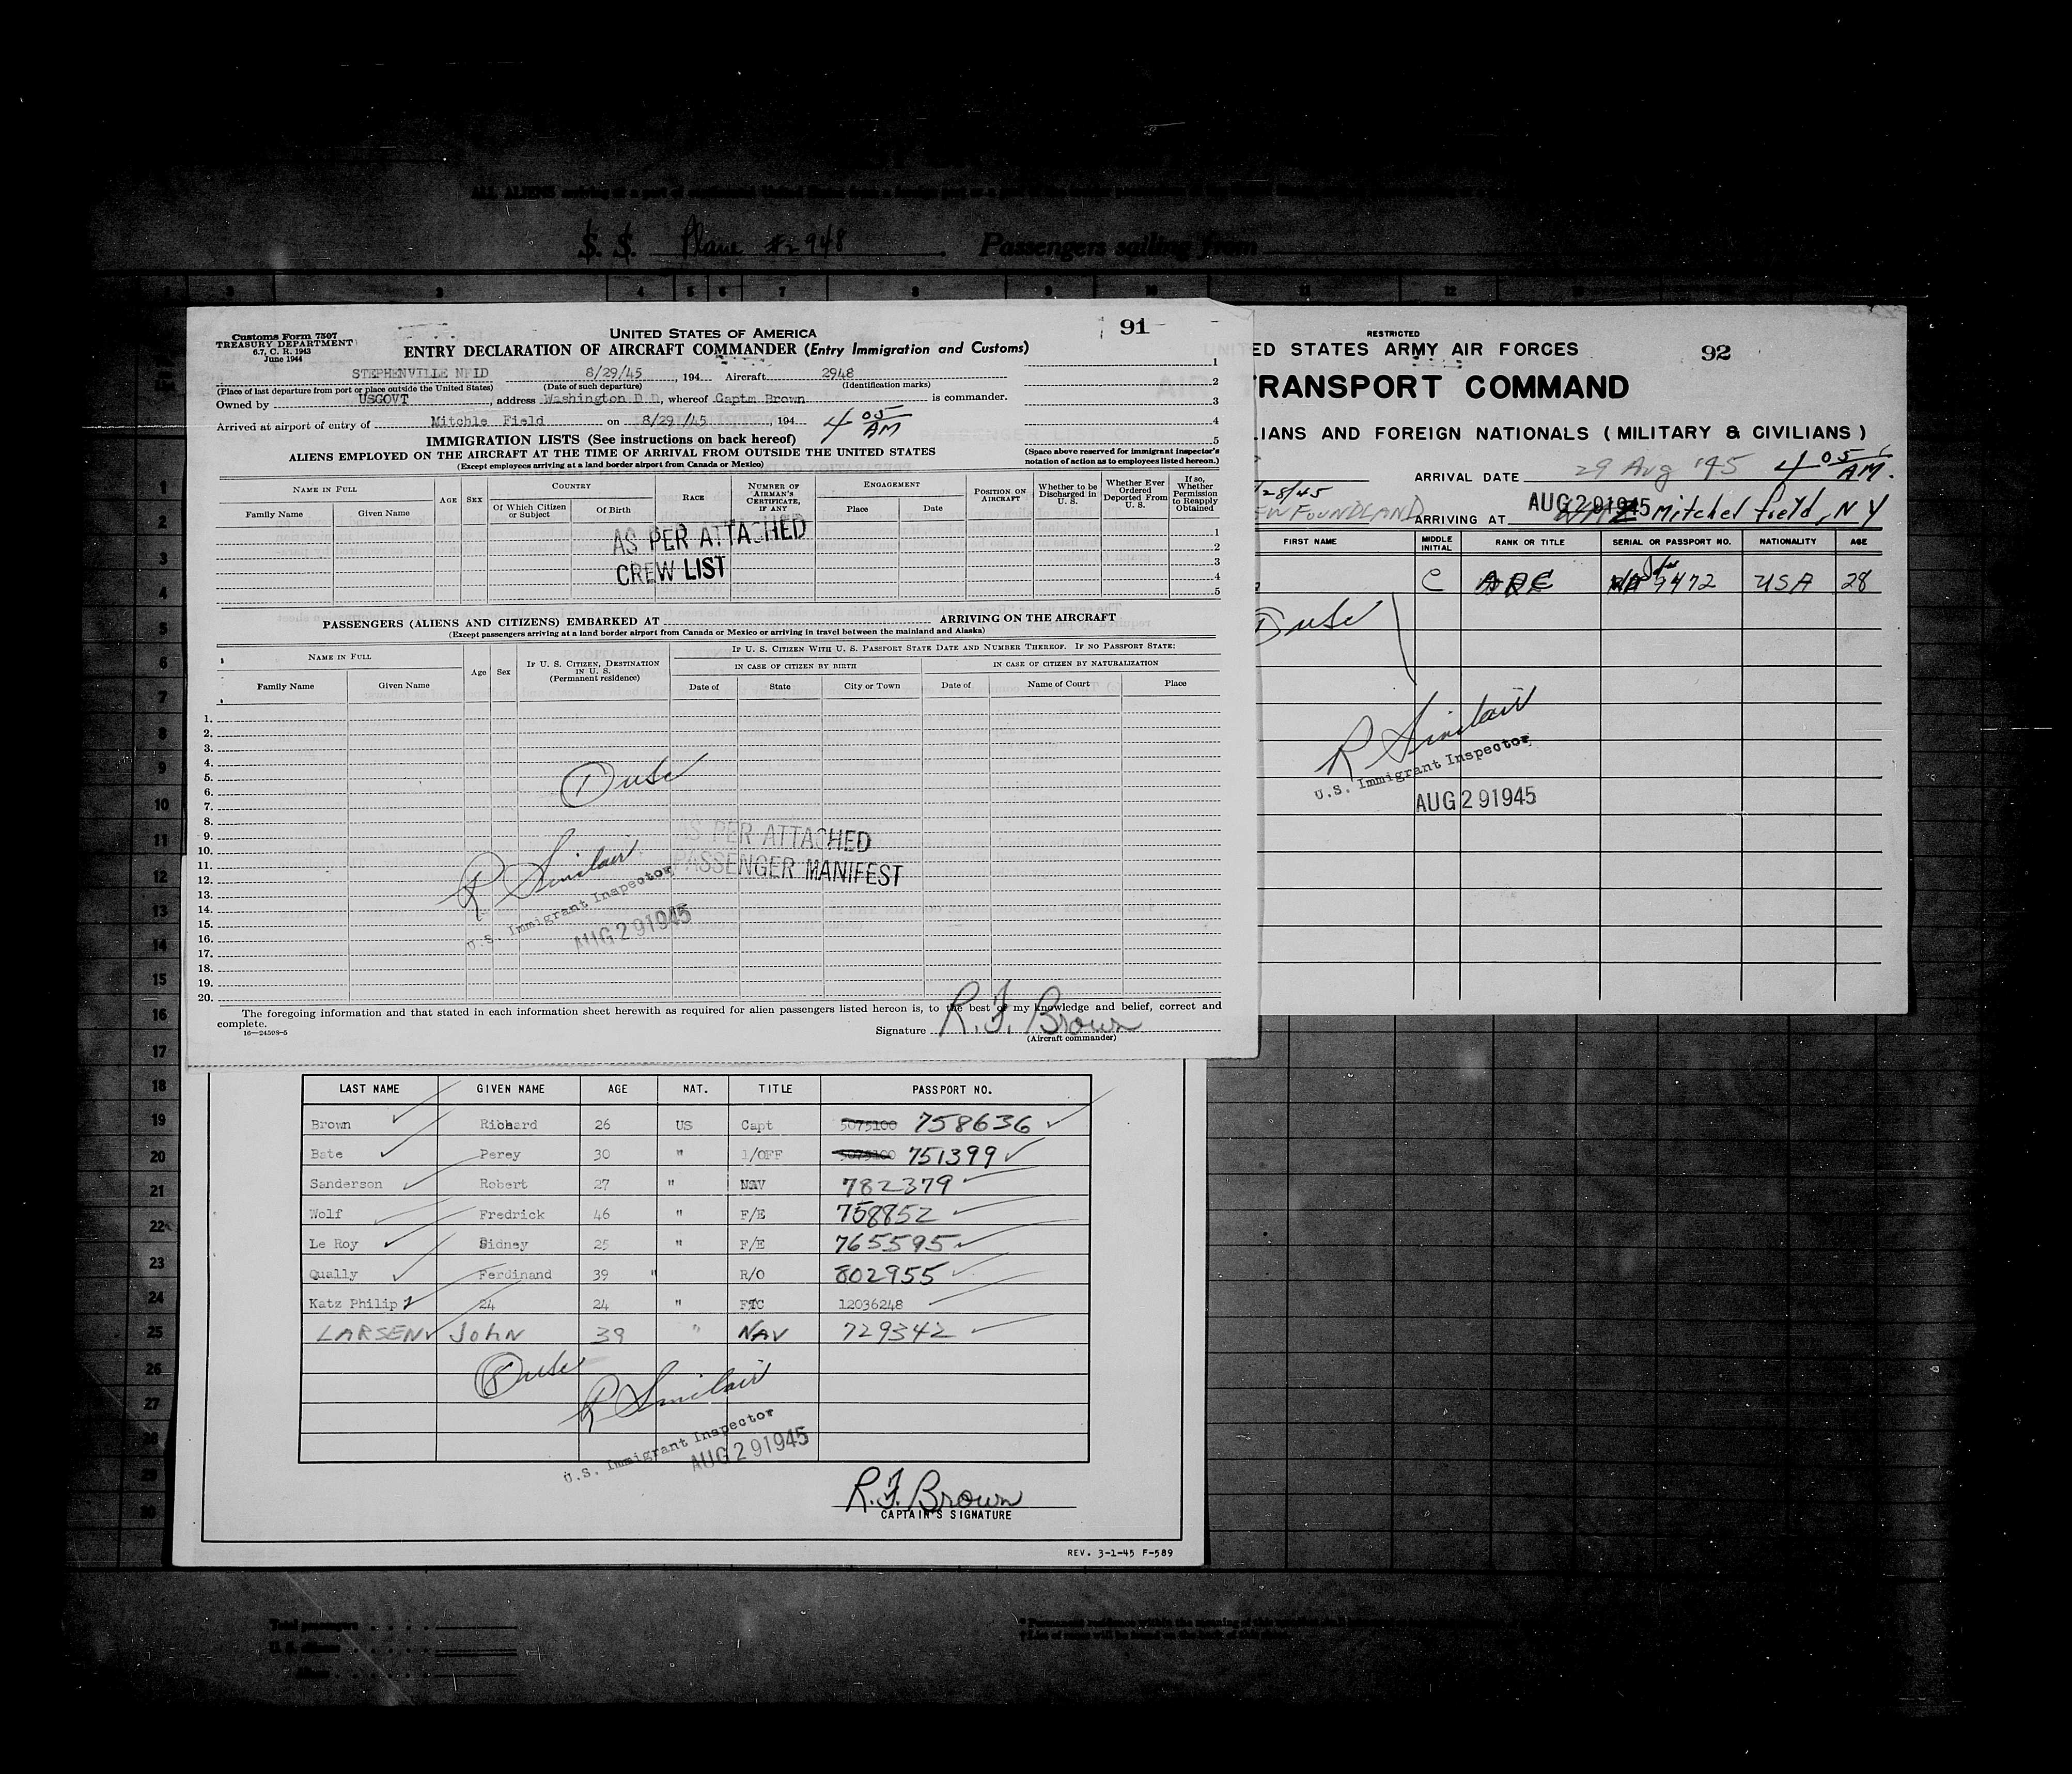 S. S. Plane #2948 Passengers sailing from
Customs Form 7507
TREASURY DEPARTMENT
6.7, C. R. 1943
June 1944
UNITED STATES OF AMERICA
91
ENTRY DECLARATION OF AIRCRAFT COMMANDER (Entry Immigration and Customs)
STEPHENVILLE NFID 8/29/45, 194 Aircraft 2948
(Place of last departure from port or place outside the United States) (Date of such departure) (Identification marks)
Owned by USGOVT, address Washington D D, whereof Captm Brown is commander.
Arrived at airport of entry of Mitchle Field on 8/29/45, 194 4 05 AM
1
2
3
4
5
IMMIGRATION LISTS (See instructions on back hereof)
ALIENS EMPLOYED ON THE AIRCRAFT AT THE TIME OF ARRIVAL FROM OUTSIDE THE UNITED STATES
(Except employees arriving at a land border airport from Canada or Mexico)
(Space above reserved for immigrant inspector's notation of action as to employees listed hereon.)
NAME IN FULL
Family Name Given Name
AGE SEX
COUNTRY
Of Which Citizen or Subject Of Birth
RACE
NUMBER OF AIRMAN'S CERTIFICATE, IF ANY
ENGAGEMENT
Place Date
POSITION ON AIRCRAFT
Whether to be Discharged in U. S.
Whether Ever Ordered Deported From U. S.
If so, Whether Permission to Reapply Obtained
AS PER ATTACHED
CREW LIST
1
2
3
4
5
PASSENGERS (ALIENS AND CITIZENS) EMBARKED AT ARRIVING ON THE AIRCRAFT
(Except passengers arriving at a land border airport from Canada or Mexico or arriving in travel between the mainland and Alaska)
NAME IN FULL
Family Name Given Name
Age Sex
IF U. S. CITIZEN, DESTINATION IN U. S.
(Permanent residence)
IF U. S. CITIZEN WITH U. S. PASSPORT STATE DATE AND NUMBER THEREOF. IF NO PASSPORT STATE:
IN CASE OF CITIZEN BY BIRTH IN CASE OF CITIZEN BY NATURALIZATION
Date of State City or Town Date of Name of Court Place
1.
2.
3.
4.
5.
6.
7.
8.
9.
10.
11.
12.
13.
14.
15.
16.
17.
18.
19.
20.
1 USC
AS PER ATTACHED
PASSENGER MANIFEST
R Sinclair
U.S. Immigrant Inspector
AUG 29 1945
The foregoing information and that stated in each information sheet herewith as required for alien passengers listed hereon is, to the best of my knowledge and belief, correct and
complete.
16—24598-5
Signature R. F. Brown
(Aircraft commander)
RESTRICTED
ED STATES ARMY AIR FORCES
92
TRANSPORT COMMAND
LIANS AND FOREIGN NATIONALS (MILITARY & CIVILIANS)
ARRIVAL DATE 29 Aug '45 4 05 AM.
/28/45
EWFOUNDLAND
AUG 29 1945
ARRIVING AT Mitchel field, NY
FIRST NAME MIDDLE INITIAL RANK OR TITLE SERIAL OR PASSPORT NO. NATIONALITY AGE
C ARC 9472 USA 28
1 USC
R Sinclair
U.S. Immigrant Inspector
AUG 29 1945
LAST NAME GIVEN NAME AGE NAT. TITLE PASSPORT NO.
Brown Richard 26 US Capt 5075100 758636
Bate Perey 30 " 1/OFF 751399
Sanderson Robert 27 " NAV 782379
Wolf Fredrick 46 " F/E 758852
Le Roy Sidney 25 " F/E 765595
Qually Ferdinand 39 " R/O 802955
Katz Philip 24 24 " FTC 12036248
LARSEN JOHN 38 " NAV 729342
8 USC
R Sinclair
U.S. Immigrant Inspector
AUG 29 1945
R. F. Brown
CAPTAIN'S SIGNATURE
REV. 3-1-45 F-589
1
2
3
4
5
6
7
8
9
10
11
12
13
14
15
16
17
18
19
20
21
22
23
24
25
26
27
28
29
30
Total passengers
U. S. citizens
Aliens